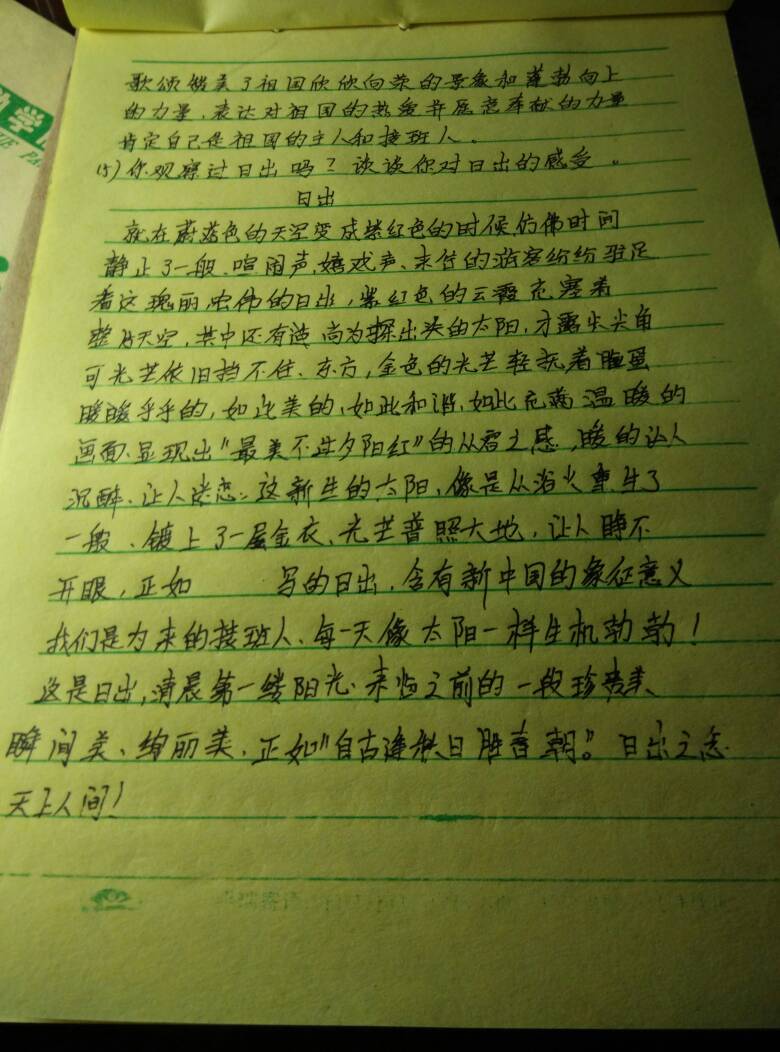 歌颂赞美了祖国欣欣向荣的景象和蓬勃向上
的力量,表达对祖国的热爱并愿意奉献的力量
肯定自己是祖国的主人和接班人。
(5)你观察过日出吗?谈谈你对日出的感受。
日出
就在蔚蓝色的天空变成紫红色的时候,仿佛时间
静止了一般、喧闹声、嬉戏声、来往的游客纷纷驻足
看这瑰丽,宏伟的日出,紫红色的云霞充塞着
整片天空,其中还有 尚为探出头的太阳,才露尖尖角
可光芒依旧挡不住、东方,金色的光芒轻抚着脸蛋
暖暖乎乎的,如此美的,如此和谐,如此充满温暖的
画面、显现出"最美不过夕阳红"的从容之感,暖的让人
沉醉、让人迷恋。这新生的太阳,像是从浴火重生了
一般、镀上了一层金衣、光芒普照大地,让人睁不
开眼,正如 写的日出,含有新中国的象征意义
我们是为来的接班人、每一天像太阳一样生机勃勃!
这是日出,清晨第一缕阳光、来临之前的一段珍贵美、
瞬间美、绚丽美、正如"自古逢秋日胜春朝"。日出之态
天上人间!